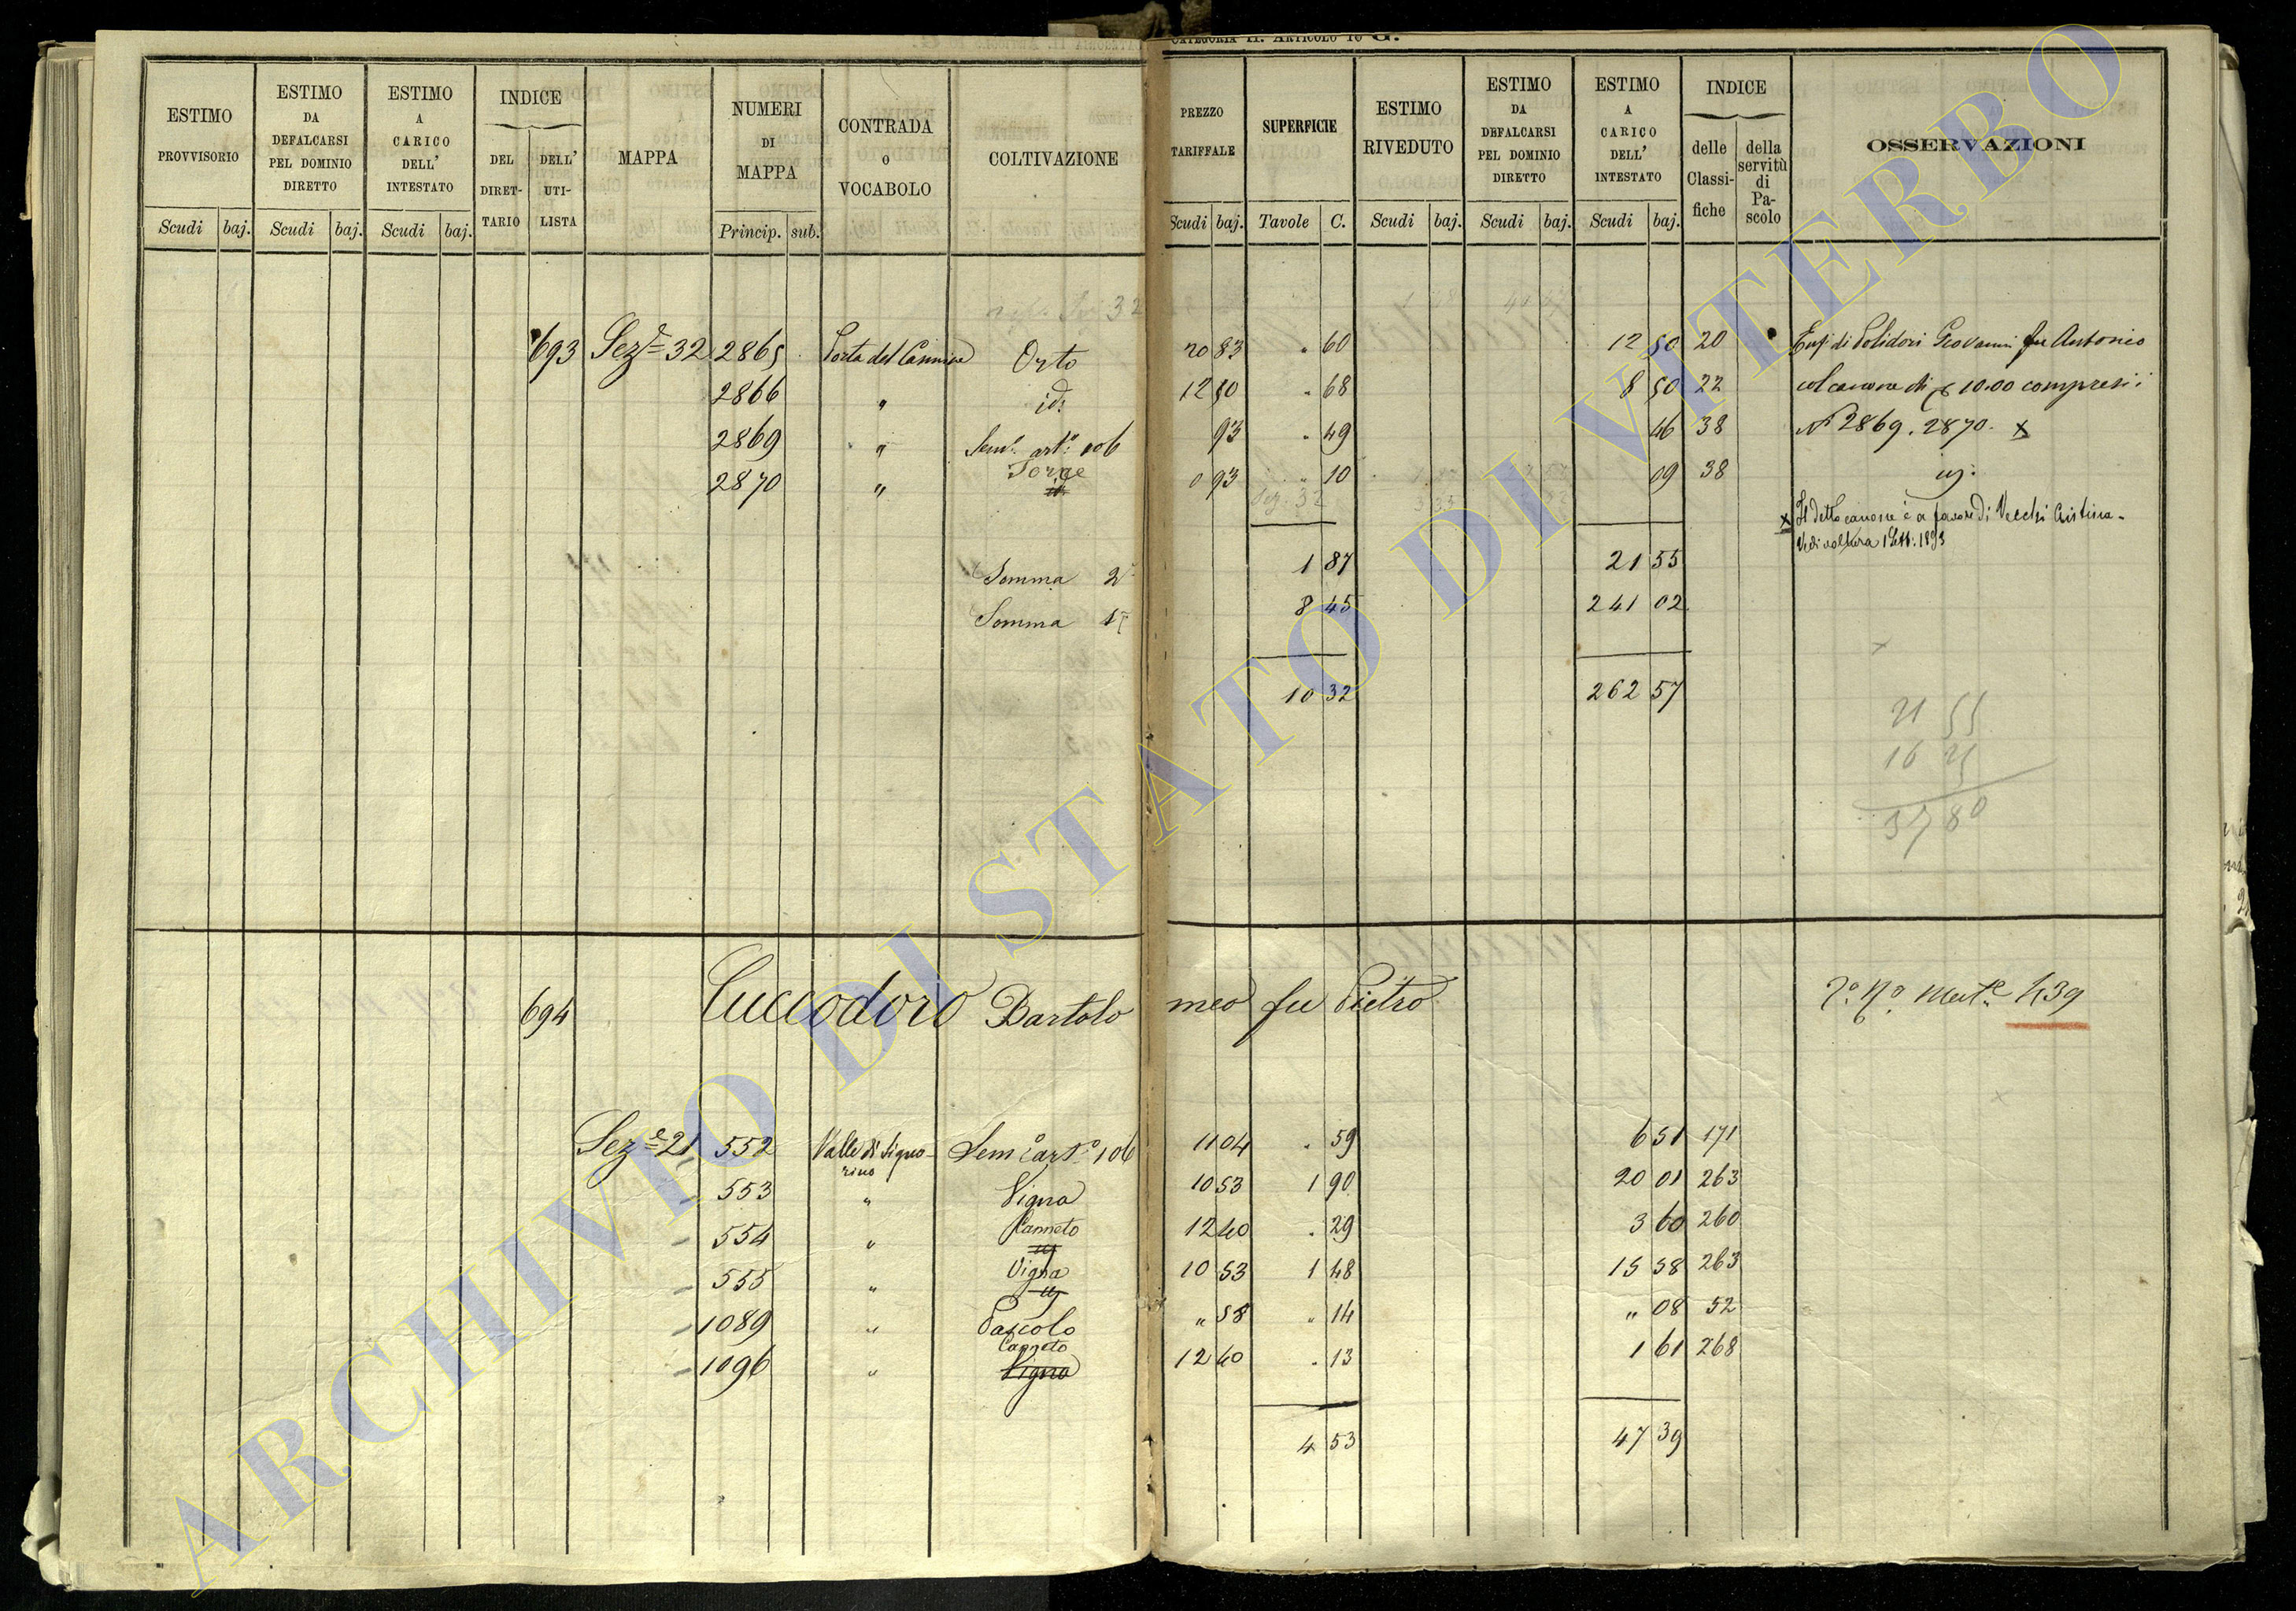 CATEGORIA II. ARTICOLO 16 G.
ESTIMO PROVVISORIO
ESTIMO DA DEFALCARSI PEL DOMINIO DIRETTO
ESTIMO A CARICO DELL' INTESTATO
INDICE
DEL DIRET-TARIO
DELL' UTI-LISTA
MAPPA
NUMERI DI MAPPA
CONTRADA O VOCABOLO
COLTIVAZIONE
PREZZO TARIFFALE
SUPERFICIE
ESTIMO RIVEDUTO
ESTIMO DA DEFALCARSI PEL DOMINIO DIRETTO
ESTIMO A CARICO DELL' INTESTATO
INDICE
delle Classi-fiche
della servitù di Pa-scolo
OSSERVAZIONI
Scudi baj. Scudi baj. Scudi baj. Princip. sub. Scudi baj. Tavole C. Scudi baj. Scudi baj. Scudi baj.
693 Sez.e 32 2865 Porta del Carmine Orto 20 83 " 60 12 50 20 Enf. di Polidori Giovanni fu Antonio
2866 " id. 12 50 " 68 8 50 22 col canone di 10.00 compresi i
2869 " Sem.o art.o 106 93 " 49 46 38 N. 2869. 2870. x
2870 " Torre 0 93 " 10 09 38
Sez. 32
x Il detto canone è a favore di Vecchi Cristina
Vedi voltura 1 Sett. 1893
Somma 2a 1 87 21 55
Somma 1a 8 45 241 02
10 32 262 57
21 55
16 25
37 80
694 Cuccodoro Bartolomeo fu Pietro
Mat.e 439
Sez.e 21 552 Valle di Signorino Sem.o art.o 106 11 04 " 59 6 51 171
553 " Vigna 10 53 1 90 20 01 263
554 " Canneto 12 40 " 29 3 60 260
555 " Vigna 10 53 1 48 15 58 263
1089 " Pascolo " 58 " 14 " 08 52
1096 " Canneto Vigna 12 40 " 13 1 61 268
4 53 47 39
ARCHIVIO DI STATO DI VITERBO